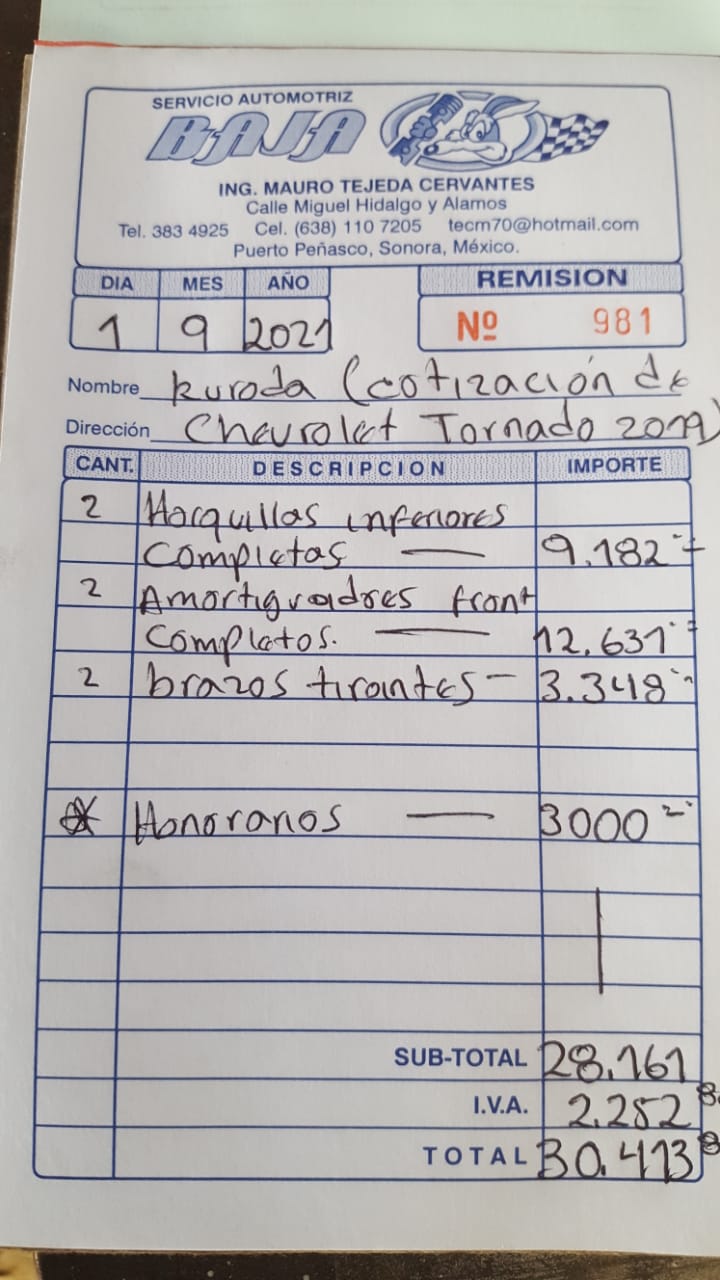 SERVICIO AUTOMOTRIZ
BAJA
ING. MAURO TEJEDA CERVANTES
Calle Miguel Hidalgo y Alamos
Tel. 383 4925 Cel. (638) 110 7205 tecm70@hotmail.com
Puerto Peñasco, Sonora, México.
DIA MES AÑO REMISION
1 9 2021 Nº 981
Nombre kuroda (cotización de
Dirección Chevrolet Tornado 2019)
CANT. DESCRIPCION IMPORTE
2 Horquillas inferiores
Completas — 9.182
2 Amortiguadores front
Completos. — 12.631
2 brazos tirantes - 3.348
Honorarios — 3000
SUB-TOTAL 28.161
I.V.A. 2.252 8
TOTAL 30.413 8